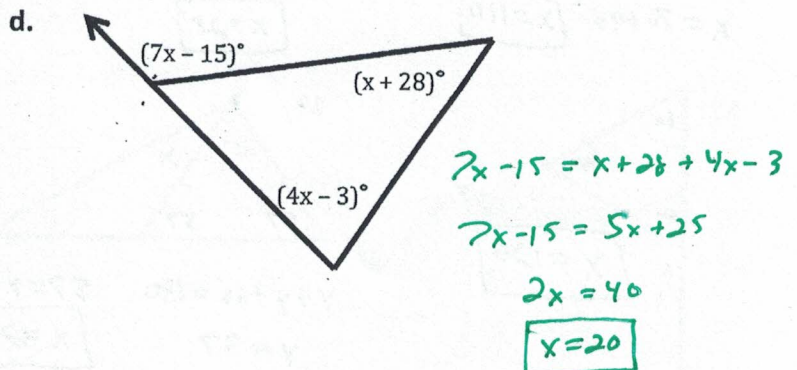 d.
(7x – 15)°
(x + 28)°
(4x – 3)°
7x - 15 = x + 28 + 4x - 3
7x - 15 = 5x + 25
2x = 40
x = 20